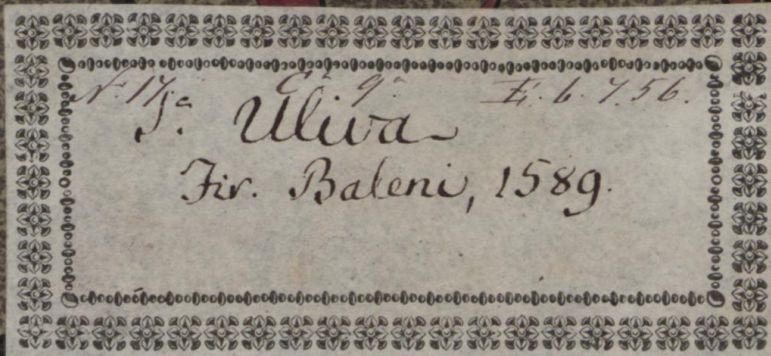 N. 17. C.ª 9.ª E. 6. 7. 56.
S.ª Uliva
Fir. Baleni, 1589.